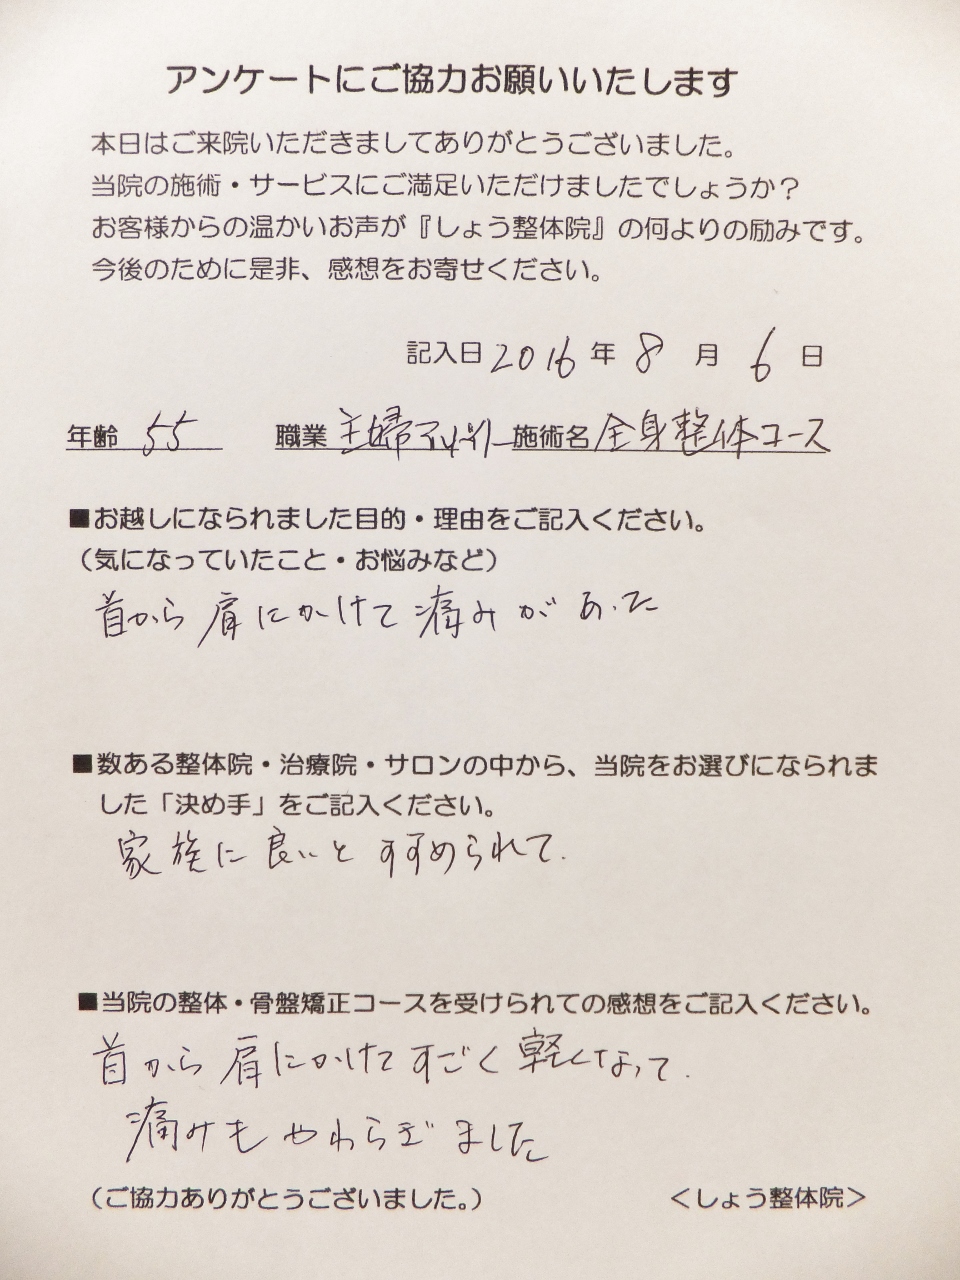 アンケートにご協力お願いいたします
本日はご来院いただきましてありがとうございました。
当院の施術・サービスにご満足いただけましたでしょうか？
お客様からの温かいお声が『しょう整体院』の何よりの励みです。
今後のために是非、感想をお寄せください。
記入日 2016 年 8 月 6 日
年齢 55 職業 主婦 施術名 全身整体コース
■お越しになられました目的・理由をご記入ください。
（気になっていたこと・お悩みなど）
首から肩にかけて痛みがあった
■数ある整体院・治療院・サロンの中から、当院をお選びになられま
した「決め手」をご記入ください。
家族に良いとすすめられて.
■当院の整体・骨盤矯正コースを受けられての感想をご記入ください。
首から肩にかけてすごく軽くなって.
痛みもやわらぎました
（ご協力ありがとうございました。） ＜しょう整体院＞